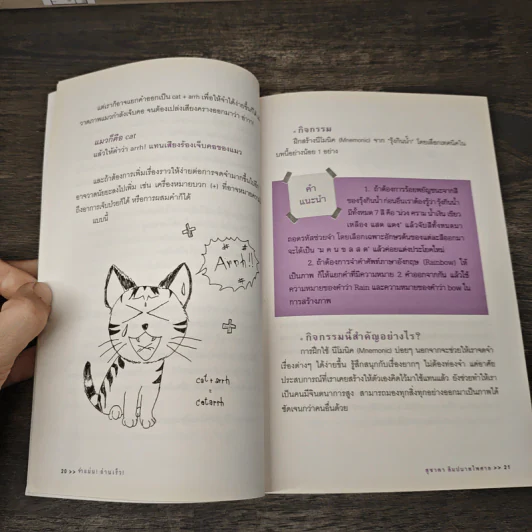 แต่เราก็อาจแยกคำออกเป็น cat + arrh เพื่อให้จำได้ง่ายขึ้นก็ได้
วาดภาพแมวกำลังเจ็บคอ จนต้องเปล่งเสียงครางออกมาว่า อ่าาา
แมวก็คือ cat
แล้วให้คำว่า arrh! แทนเสียงร้องเจ็บคอของแมว
และถ้าต้องการเพิ่มเรื่องราวให้ง่ายต่อการจดจำมากขึ้นไปอีก
อาจวาดนัยยะลงไปเพิ่ม เช่น เครื่องหมายบวก (+) ที่อาจหมายความ
ถึงอาการเจ็บป่วยก็ได้ หรือการผสมคำก็ได้
แบบนี้
Arrh!!
cat + arrh
=
catarrh
20 >> จำแม่น! อ่านเร็ว!
กิจกรรม
ฝึกสร้างนีโมนิค (Mnemonic) จาก "รุ้งกินน้ำ" โดยเลือกเทคนิคใน
บทนี้อย่างน้อย 1 อย่าง
คำ
แนะนำ
1. ถ้าต้องการร้อยพยัญชนะจากสี
ของรุ้งกินน้ำ ก่อนอื่นเราต้องรู้ว่า รุ้งกินน้ำ
มีทั้งหมด 7 สี คือ ม่วง คราม น้ำเงิน เขียว
เหลือง แสด แดง แล้วจับสีทั้งหมดมา
ถอดรหัสช่วยจำ โดยเลือกเฉพาะอักษรต้นของแต่ละสีออกมา
จะได้เป็น "ม ค น ข ล ส ด" แล้วค่อยแต่งประโยคใหม่
2. ถ้าต้องการจำคำศัพท์ภาษาอังกฤษ (Rainbow) ให้
เป็นภาพ ก็ให้แยกคำที่มีความหมาย 2 คำออกจากกัน แล้วใช้
ความหมายของคำว่า Rain และความหมายของคำว่า bow ใน
การสร้างภาพ
กิจกรรมนี้สำคัญอย่างไร?
การฝึกใช้ นีโมนิค (Mnemonic) บ่อยๆ นอกจากจะช่วยให้เราจดจำ
เรื่องต่างๆ ได้ง่ายขึ้น รู้สึกสนุกกับเรื่องยากๆ ไม่ต้องท่องจำ แต่อาศัย
ประสบการณ์ที่เราเคยสร้างให้ตัวเองคิดไว้มาใช้แทนแล้ว ยังช่วยทำให้เรา
เป็นคนมีจินตนาการสูง สามารถมองทุกสิ่งทุกอย่างออกมาเป็นภาพได้
ชัดเจนกว่าคนอื่นด้วย
>> 21